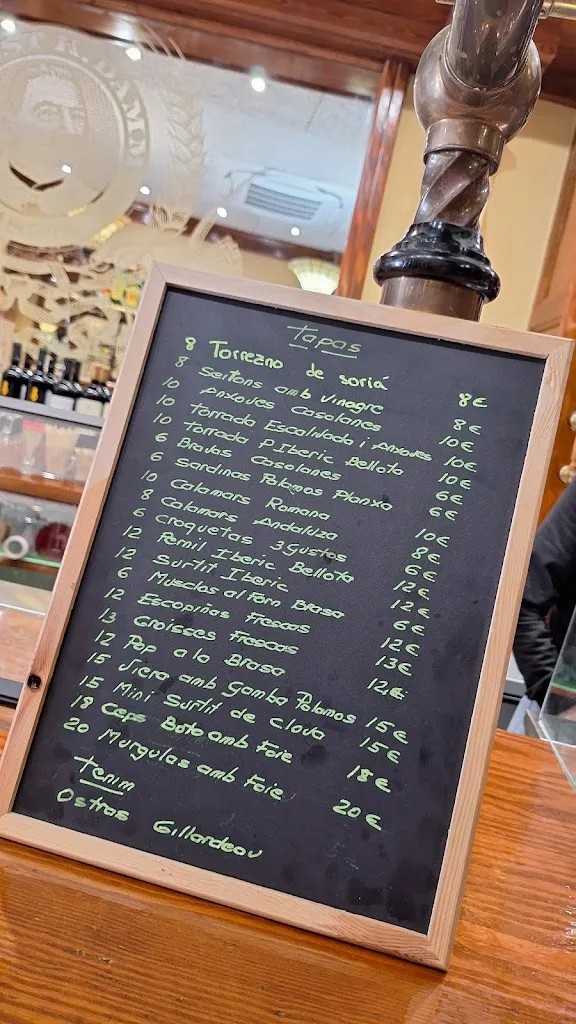 K. DAMM
Tapas
8 Torrezno de soriá 8€
8 Seitons amb vinagre 8€
10 Anxoves Casolanes 10€
10 Torrada Escalivada i Anxoves 10€
10 Torrada P. Iberic Bellota 10€
6 Bravas Casolanes 6€
6 Sardinas Palamos Planxa 6€
10 Calamars Romana 10€
8 Calamars Andaluza 8€
6 Croquetas 3 gustos 6€
12 Pernil Iberic Bellota 12€
12 Surtit Iberic 12€
6 Musclos al Forn Brasa 6€
12 Escopiñas Frescas 12€
13 Groisses Frescas 13€
12 Pop a la Brasa 12€
15 Viera amb Gamba Palamos 15€
15 Mini Surtit de Clova 15€
18 Ceps Boto amb Foie 18€
20 Murgulas amb Foie 20€
Tenim
Ostras Gillardeau